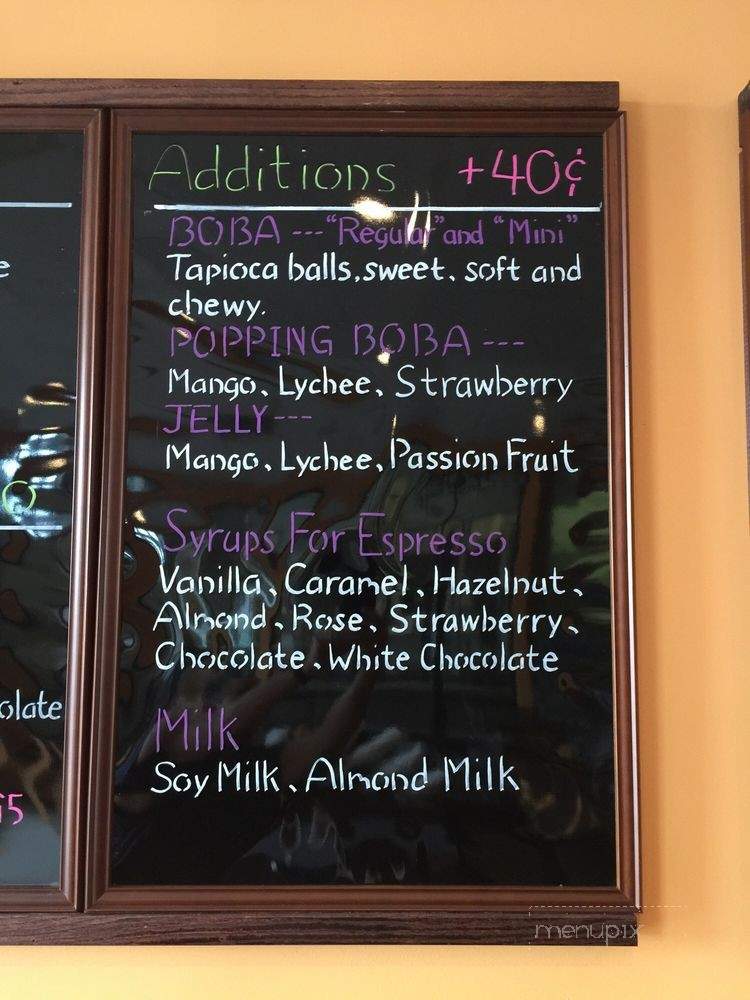 Additions +40¢
BOBA ---"Regular" and "Mini"
Tapioca balls, sweet, soft and
chewy.
POPPING BOBA ---
Mango, Lychee, Strawberry
JELLY---
Mango, Lychee, Passion Fruit
Syrups For Espresso
Vanilla, Caramel, Hazelnut,
Almond, Rose, Strawberry,
Chocolate, White Chocolate
Milk
Soy Milk, Almond Milk
olate
menupix